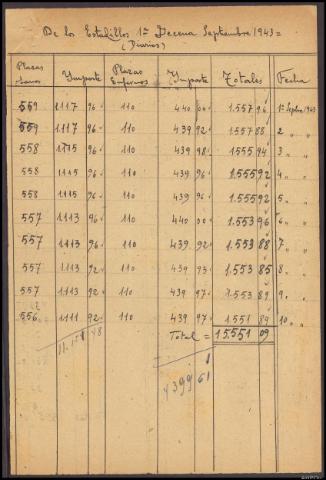 De los Estadillos 1ª Decena Septiembre 1943=
(Diarios)
Plazas Sanos Importe Plazas Enfermos Importe Totales Fecha
559 1.117 96 110 440 00 1.557 96 1º Septbre 1943
559 1.117 96 110 439 92 1.557 88 2 " "
558 1.115 96 110 439 98 1.555 94 3 " "
558 1.115 96 110 439 96 1.555 92 4 " "
558 1.115 96 110 439 96 1.555 92 5 " "
557 1.113 96 110 440 00 1.553 96 6 " "
557 1.113 96 110 439 92 1.553 88 7 " "
557 1.113 92 110 439 93 1.553 85 8 " "
557 1.113 92 110 439 97 1.553 89 9 " "
556 1.111 92 110 439 97 1.551 89 10 " "
Total = 15.551 09
4399 61